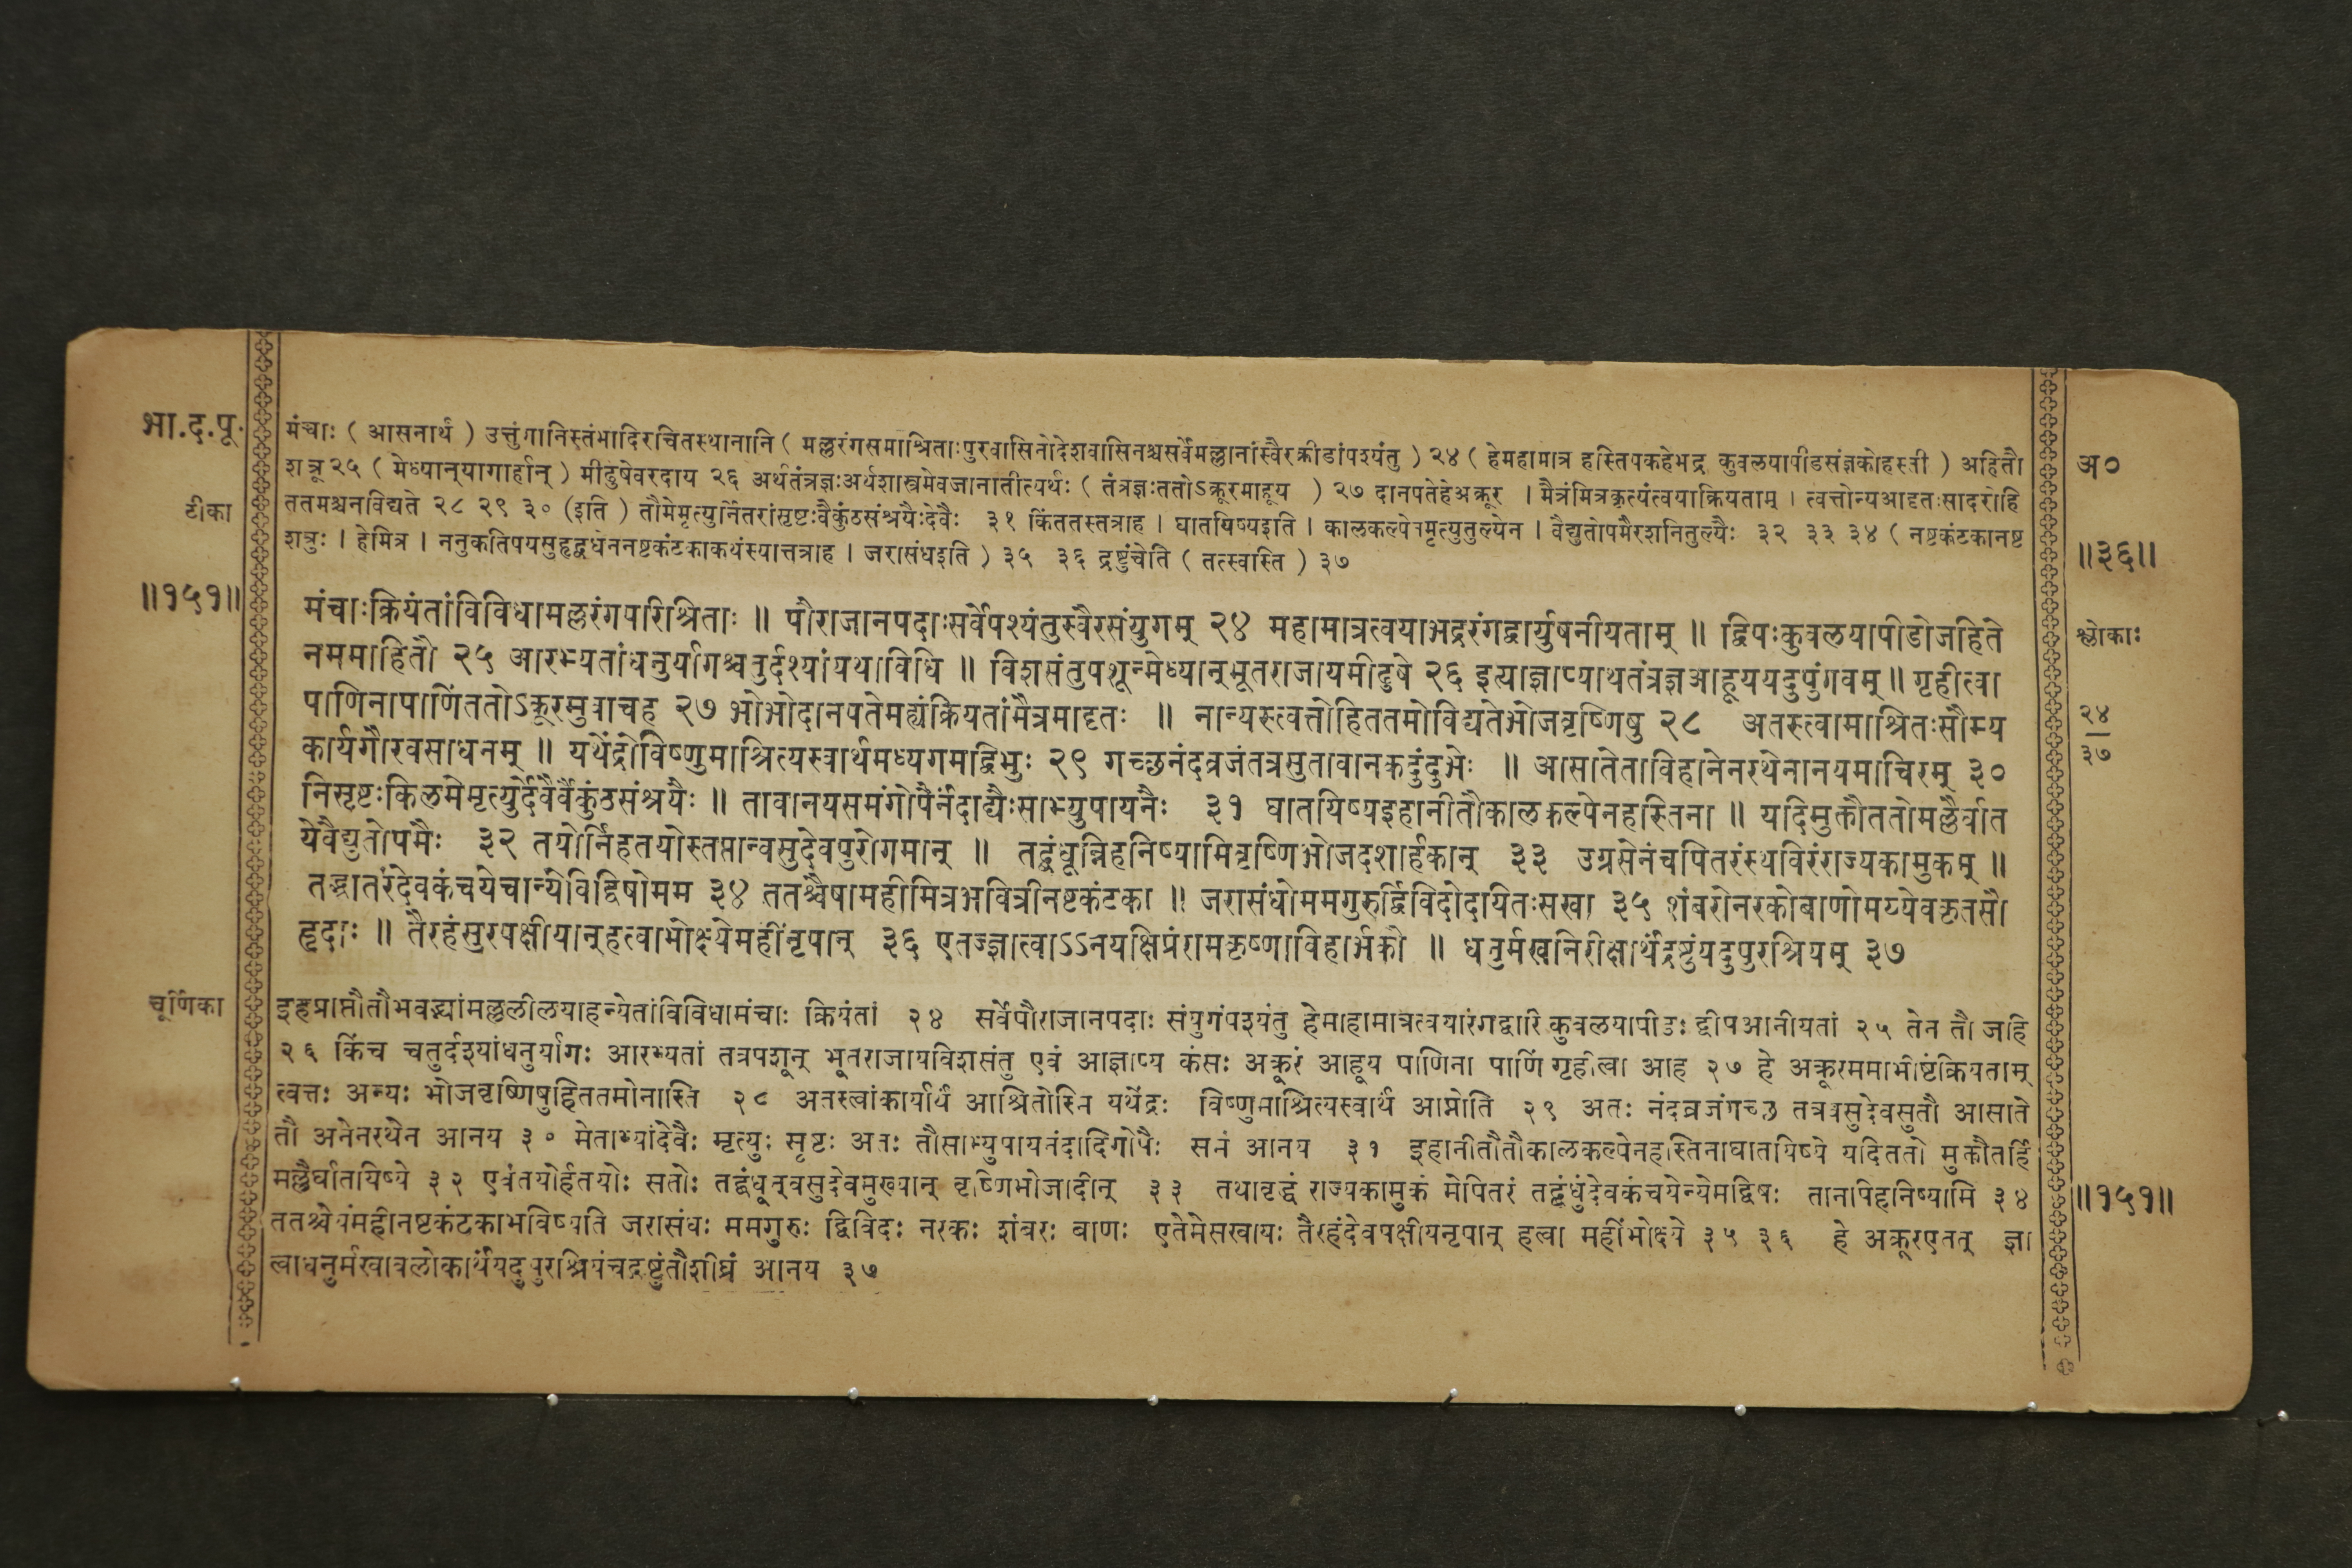 भा.द.पू.
टीका
॥१५१॥
मंचाः ( आसनार्थं ) उत्तुंगानिस्तंभादिरचितस्थानानि ( मल्लरंगसमाश्रिताःपुरवासिनोदेशवासिनश्चसर्वेमल्लानांस्वैरक्रीडांपश्यंतु ) २४ ( हेमहामात्र हस्तिपकहेभद्र कुवलयापीडसंज्ञकोहस्ती ) अहितौ
शत्रू २५ ( मेध्यान्यागार्हान् ) मीढुषेवरदाय २६ अर्थतंत्रज्ञःअर्थशास्त्रमेवजानातीत्यर्थः ( तंत्रज्ञःततोऽक्रूरमाहूय ) २७ दानपतेहेअक्रूर । मैत्रंमित्रकृत्यंत्वयाक्रियताम् । त्वत्तोन्यआदृतःसादरोहि
ततमश्चनविद्यते २८ २९ ३० (इति ) तौमेमृत्युर्नितरांसृष्टःवैकुंठसंश्रयैःदेवैः ३१ किंततस्तत्राह । घातयिष्यइति । कालकल्पेनमृत्युतुल्येन । वैद्युतोपमैरशनितुल्यैः ३२ ३३ ३४ ( नष्टकंटकानष्ट
शत्रुः । हेमित्र । ननुकतिपयसुहृद्वधेननष्टकंटकाकथंस्यात्तत्राह । जरासंधइति ) ३५ ३६ द्रष्टुंचेति ( तत्स्वस्ति ) ३७
मंचाःक्रियंतांविविधामल्लरंगपरिश्रिताः ॥ पौराजानपदाःसर्वेपश्यंतुस्वैरसंयुगम् २४ महामात्रत्वयाभद्ररंगद्वार्युपनीयताम् ॥ द्विपःकुवलयापीडोजहिते
नममाहितौ २५ आरभ्यतांधनुर्यागश्चतुर्दश्यांयथाविधि ॥ विशसंतुपशून्मेध्यान्भूतराजायमीढुषे २६ इत्याज्ञाप्यार्थतंत्रज्ञआहूययदुपुंगवम् ॥ गृहीत्वा
पाणिनापाणिंततोऽक्रूरमुवाचह २७ भोभोदानपतेमह्यंक्रियतांमैत्रमादृतः ॥ नान्यस्त्वत्तोहिततमोविद्यतेभोजवृष्णिषु २८ अतस्त्वामाश्रितःसौम्य
कार्यगौरवसाधनम् ॥ यथेंद्रोविष्णुमाश्रित्यस्वार्थमध्यगमद्विभुः २९ गच्छनंदव्रजंतत्रसुतावानकदुंदुभेः ॥ आसातेताविहानेनरथेनानयमाचिरम् ३०
निसृष्टःकिलमेमृत्युर्देवैर्वैकुंठसंश्रयैः ॥ तावानयसमंगोपैर्नंदाद्यैःसाभ्युपायनैः ३१ घातयिष्यइहानीतौकालकल्पेनहस्तिना ॥ यदिमुक्तौततोमल्लैर्घात
येवैद्युतोपमैः ३२ तयोर्निहतयोस्तप्तान्वसुदेवपुरोगमान् ॥ तद्बंधून्निहनिष्यामिवृष्णिभोजदशार्हकान् ३३ उग्रसेनंचपितरंस्थविरंराज्यकामुकम् ॥
तद्भ्रातरंदेवकंचयेचान्येविद्विषोमम ३४ ततश्चैषामहीमित्रभवित्रीनष्टकंटका ॥ जरासंधोममगुरुर्द्विविदोदयितःसखा ३५ शंबरोनरकोबाणोमय्येवकृतसौ
हृदाः ॥ तैरहंसुरपक्षीयान्हत्वाभोक्ष्येमहींनृपान् ३६ एतज्ज्ञात्वाऽऽनयक्षिप्रंरामकृष्णाविहार्भकौ ॥ धनुर्मखनिरीक्षार्थंद्रष्टुंयदुपुरश्रियम् ३७
चूर्णिका
इहप्राप्तौतौभवद्भ्यांमल्ललीलयाहन्येतांविविधामंचाः क्रियंतां २४ सर्वेपौराजानपदाः संयुगंपश्यंतु हेमाहामात्रत्वयारंगद्वारि कुवलयापीडः द्वीपआनीयतां २५ तेन तौ जहि
२६ किंच चतुर्दश्यांधनुर्यागः आरभ्यतां तत्रपशून् भूतराजायविशसंतु एवं आज्ञाप्य कंसः अक्रूरं आहूय पाणिना पाणिं गृहीत्वा आह २७ हे अक्रूरममाभीष्टंक्रियताम्
त्वत्तः अन्यः भोजवृष्णिषुहिततमोनास्ति २८ अतस्त्वांकार्यार्थं आश्रितोस्मि यथेंद्रः विष्णुमाश्रित्यस्वार्थं आप्नोति २९ अतः नंदव्रजंगच्छ तत्रवसुदेवसुतौ आसाते
तौ अनेनरथेन आनय ३० मेताभ्यांदेवैः मृत्युः सृष्टः अतः तौसाभ्युपायनंदादिगोपैः समं आनय ३१ इहानीतौतौकालकल्पेनहस्तिनाघातयिष्ये यदिततो मुक्तौतर्हि
मल्लैर्घातयिष्ये ३२ एवंतयोर्हतयोः सतोः तद्बंधून्वसुदेवमुख्यान् वृष्णिभोजादीन् ३३ तथावृद्धं राज्यकामुकं मेपितरं तद्बंधुंदेवकंचयेन्येमद्विषः तानपिहनिष्यामि ३४
ततश्चेयंमहीनष्टकंटकाभविष्यति जरासंधः ममगुरुः द्विविदः नरकः शंबरः बाणः एतेमेसखायः तैरहंदेवपक्षीयनृपान् हत्वा महींभोक्ष्ये ३५ ३६ हे अक्रूरएतत् ज्ञा
त्वाधनुर्मखावलोकार्थंयदुपुरश्रियंचद्रष्टुंतौशीघ्रं आनय ३७
अ०
॥३६॥
श्लोकाः
२४
३७
॥१५१॥